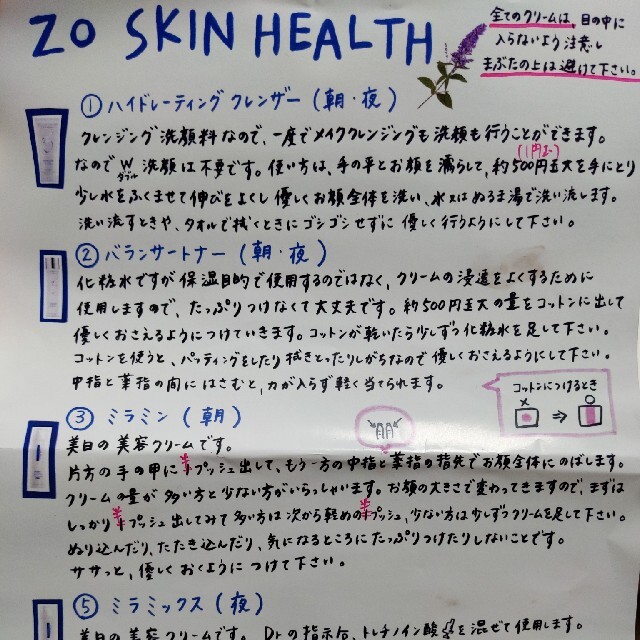 ZO SKIN HEALTH
全てのクリームは、目の中に
入らないよう注意し
まぶたの上は避けて下さい。
① ハイドレーティング クレンザー (朝・夜)
クレンジング洗顔料なので、一度でメイククレンジングも洗顔も行うことができます。
なのでW洗顔は不要です。使い方は、手の平とお顔を濡らして、約500円玉大を手にとり
ダブル
(1円玉)
少し水をふくませて伸びをよくし 優しくお顔全体を洗い、水又はぬるま湯で洗い流します。
洗い流すときや、タオルで拭くときにゴシゴシせずに 優しく行うようにして下さい。
② バランサートナー (朝・夜)
化粧水ですが 保湿目的で使用するのではなく、クリームの浸透をよくするために
使用しますので、たっぷりつけなくて大丈夫です。約500円玉大の量をコットンに出して
優しくおさえるようにつけていきます。コットンが乾いたら少しずつ化粧水を足して下さい。
コットンを使うと、パッティングをしたり拭きとったりしがちなので優しくおさえるようにして下さい。
中指と薬指の間にはさむと、力が入らず軽く当てられます。
コットンにつけるとき
③ ミラミン (朝)
美白の美容クリームです。
片方の手の甲に半プッシュ出して、もう一方の中指と薬指の指先でお顔全体にのばします。
クリームの量が多い方と少ない方がいらっしゃいます。お顔の大きさで変わってきますので、まずは
しっかり半プッシュ出してみて多い方は次から軽めの半プッシュ、少ない方は少しずつクリームを足して下さい。
ぬり込んだり、たたき込んだり、気になるところにたっぷりつけたりしないことです。
ササっと、優しくおくようにつけて下さい。
⑤ ミラミックス (夜)
美白の美容クリームです。Drの指示後、トレチノイン酸 を混ぜて使用します。